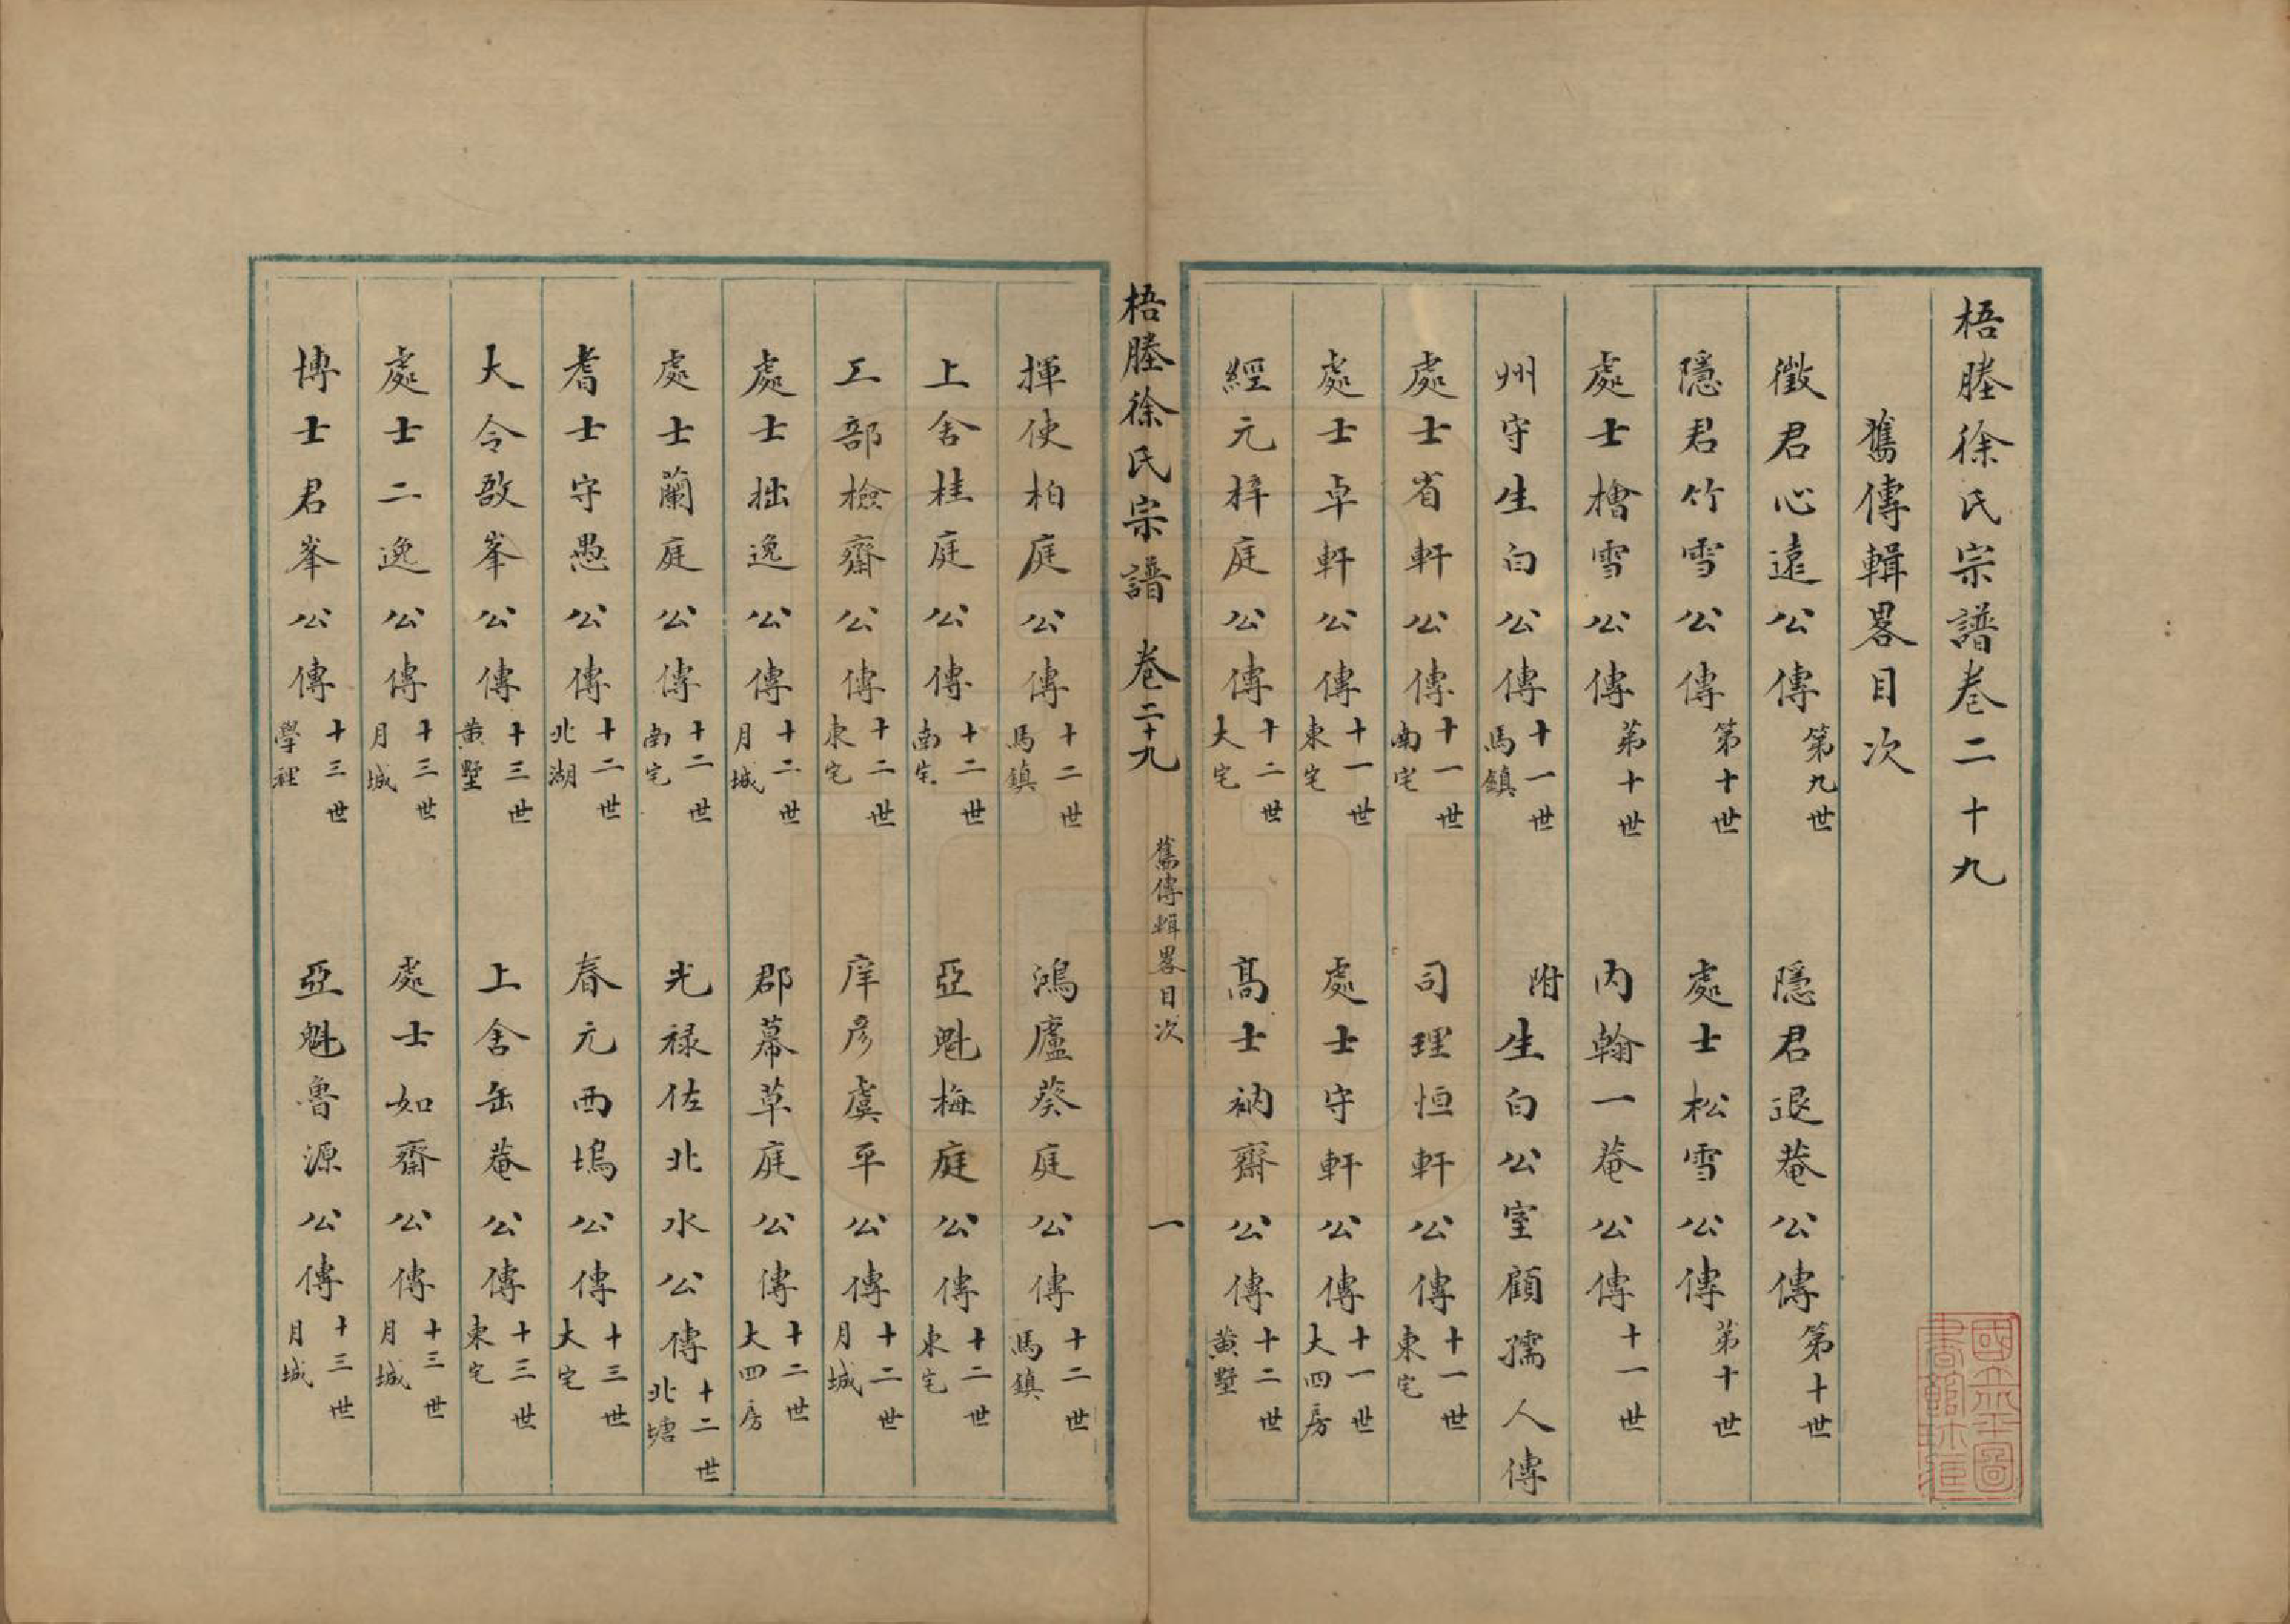 梧塍徐氏宗譜卷二十九
舊傳輯畧目次
徵君心遠公傳 第九世 隱君退菴公傳 第十世
隱君竹雪公傳 第十世 處士松雪公傳 第十世
處士檜雪公傳 第十世 内翰一菴公傳 十一世
州守生白公傳 十一世 馬鎮 附生白公室顧孺人傳
處士省軒公傳 十一世 南宅 司理恒軒公傳 十一世 東宅
處士卓軒公傳 十一世 東宅 處士守軒公傳 十一世 大四房
經元梓庭公傳 十二世 大宅 高士衲齋公傳 十二世 黄墅
梧塍徐氏宗譜 卷二十九 舊傳輯畧目次 一
揮使柏庭公傳 十二世 馬鎮 鴻廬葵庭公傳 十二世 馬鎮
上舍桂庭公傳 十二世 南宅 亞魁梅庭公傳 十二世 東宅
工部檢齋公傳 十二世 東宅 庠彦虞平公傳 十二世 月城
處士拙逸公傳 十二世 月城 郡幕草庭公傳 十二世 大四房
處士蘭庭公傳 十二世 南宅 光禄佐北水公傳 十二世 北塘
耆士守愚公傳 十二世 北湖 春元西塢公傳 十三世 大宅
大令敔峯公傳 十三世 黄墅 上舍缶菴公傳 十三世 東宅
處士二逸公傳 十三世 月城 處士如齋公傳 十三世 月城
博士君峯公傳 十三世 學裡 亞魁魯源公傳 十三世 月城
國立北平圖
書館珍藏